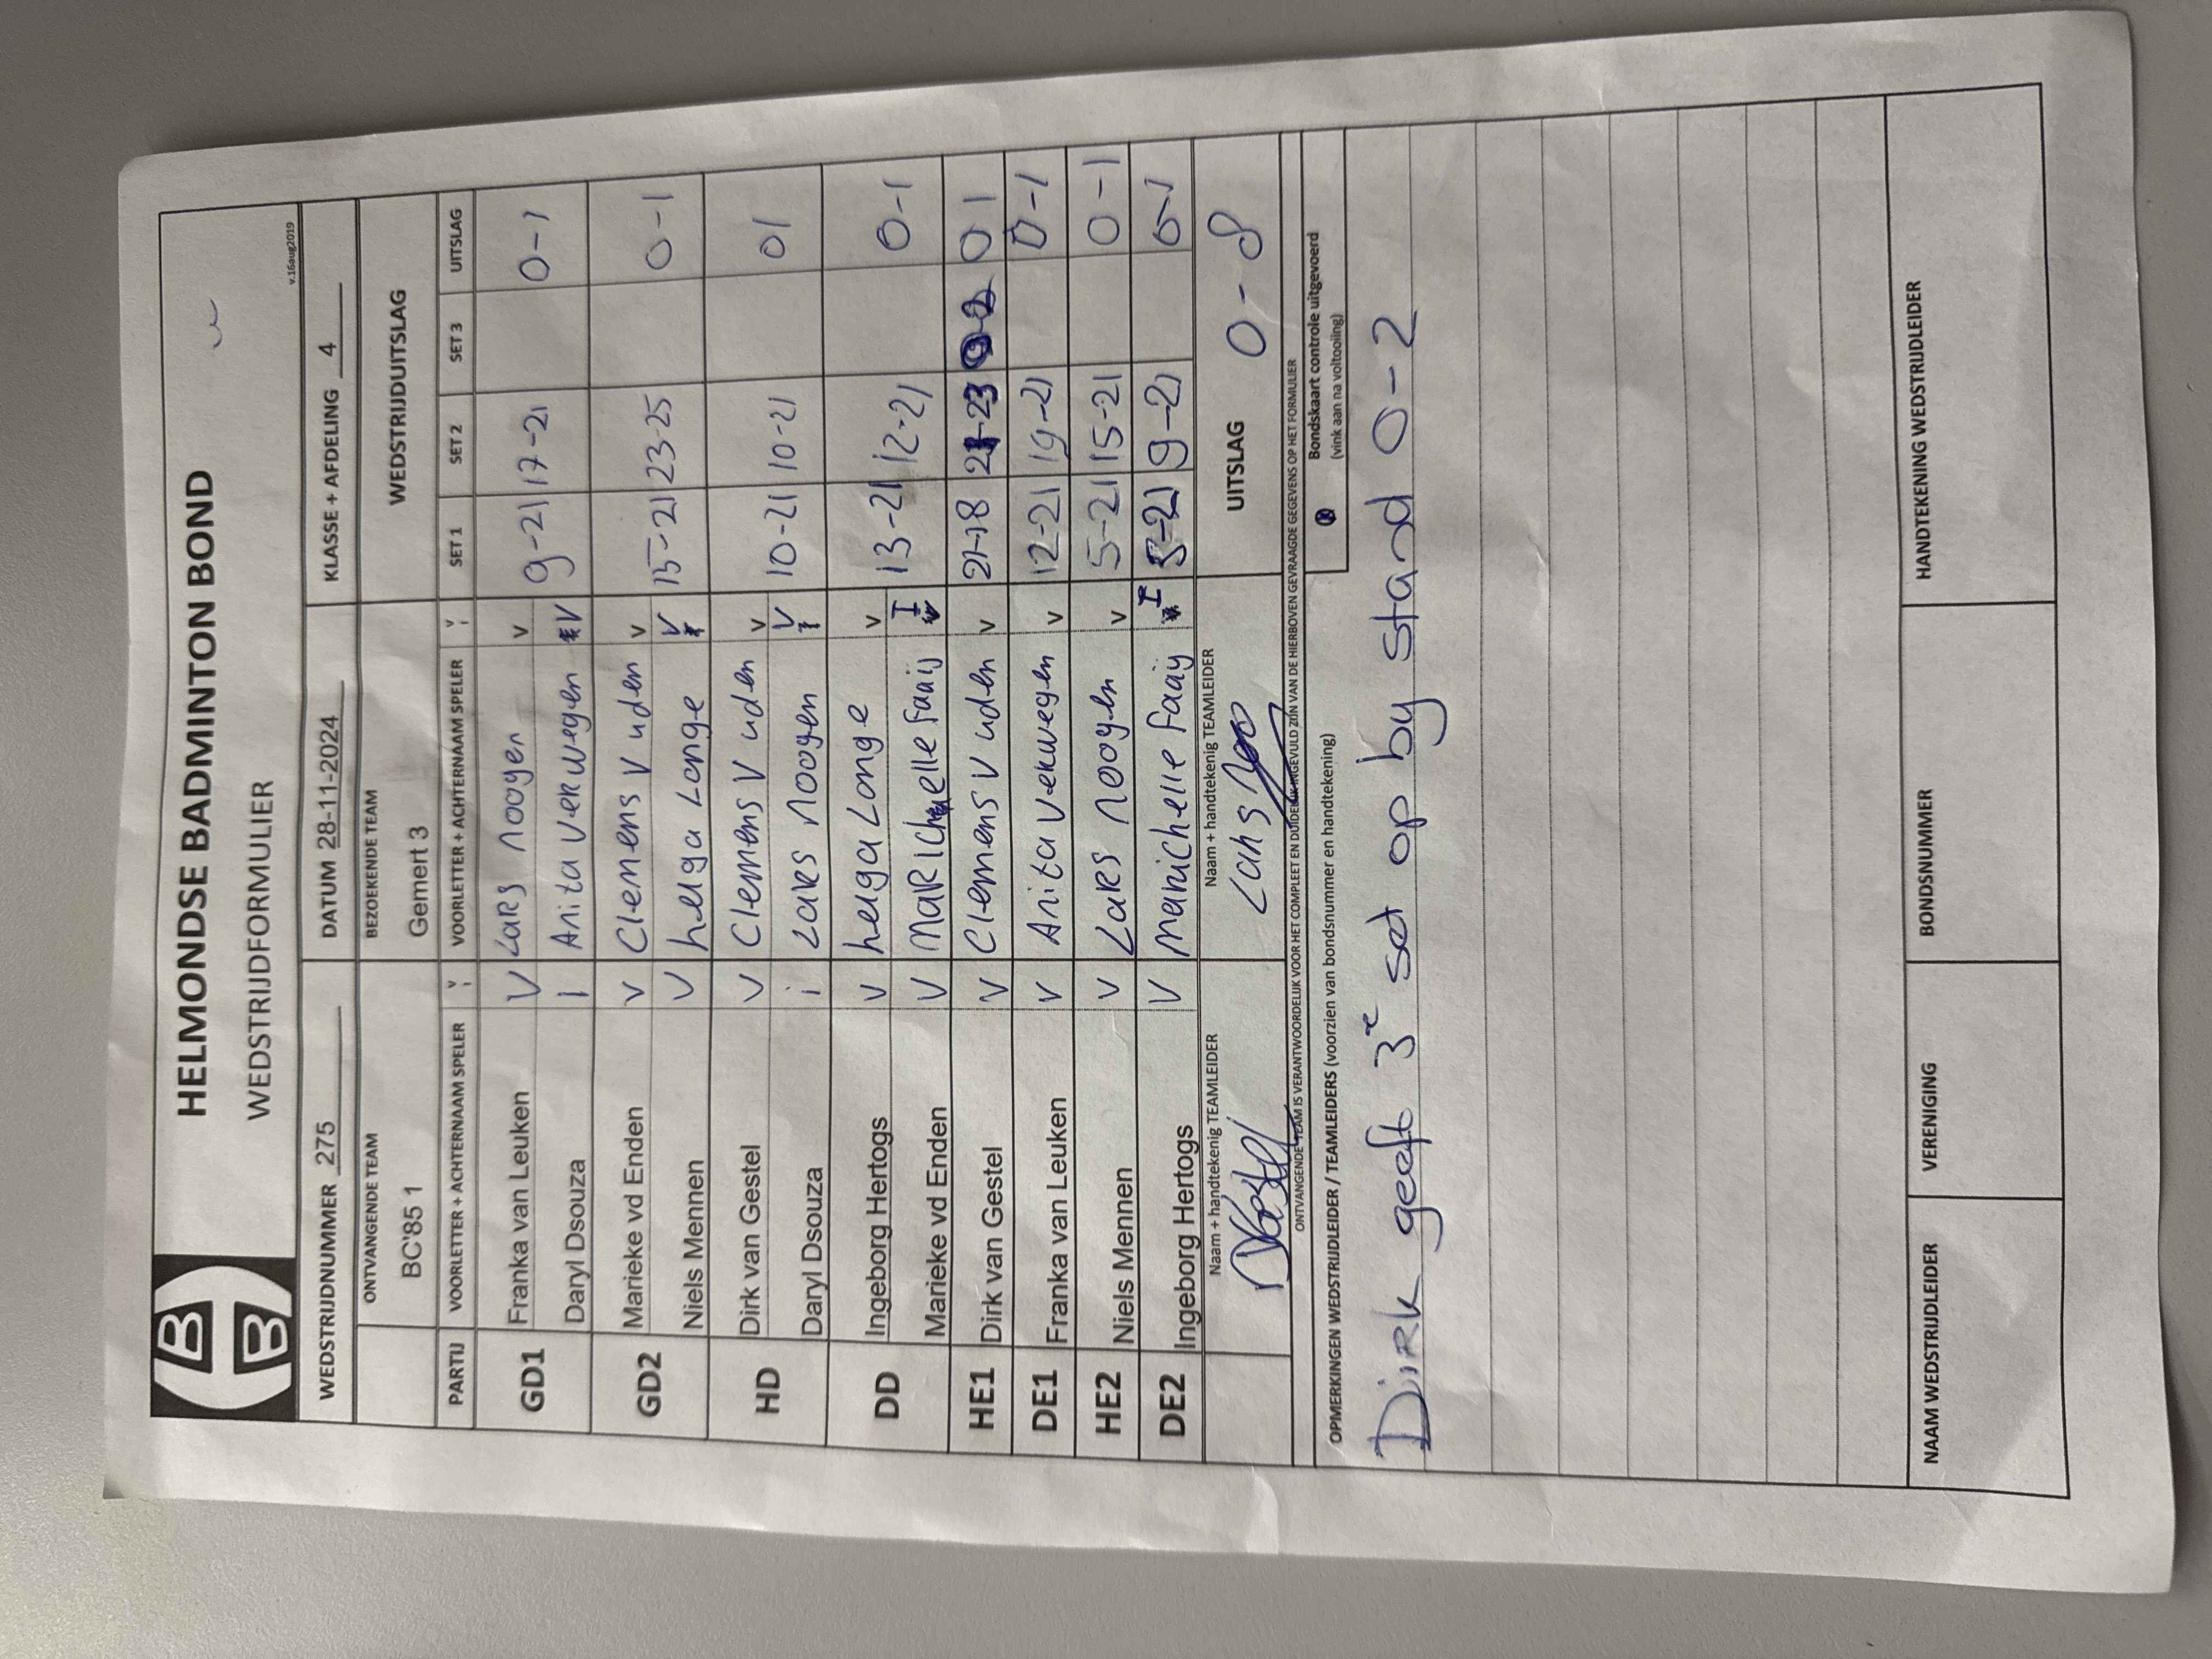 HELMONDSE BADMINTON BOND
WEDSTRIJDFORMULIER
v.16aug2019
WEDSTRIJDNUMMER 275 DATUM 28-11-2024 KLASSE + AFDELING 4
ONTVANGENDE TEAM BEZOEKENDE TEAM WEDSTRIJDUITSLAG
BC'85 1 Gemert 3
PARTIJ VOORLETTER + ACHTERNAAM SPELER V i VOORLETTER + ACHTERNAAM SPELER V i SET 1 SET 2 SET 3 UITSLAG
GD1 Franka van Leuken V Lars Nooyen v 9-21 17-21 0-1
Daryl Dsouza I Anita Verwegen V
GD2 Marieke vd Enden V Clemens V uden v 15-21 23-25 0-1
Niels Mennen V helga Lange V
HD Dirk van Gestel V Clemens V uden v 10-21 10-21 01
Daryl Dsouza i Lars Nooyen V
DD Ingeborg Hertogs V helga Lange v 13-21 12-21 0-1
Marieke vd Enden V Marichelle Faaij I
HE1 Dirk van Gestel V Clemens V uden v 21-18 21-23 0-2 01
DE1 Franka van Leuken V Anita Verwegen v 12-21 19-21 0-1
HE2 Niels Mennen V Lars Nooyen v 5-21 15-21 0-1
DE2 Ingeborg Hertogs V Marichelle Faaij I 5-21 9-21 0-1
Naam + handtekenig TEAMLEIDER Naam + handtekenig TEAMLEIDER UITSLAG 0-8
Lars
ONTVANGENDE TEAM IS VERANTWOORDELIJK VOOR HET COMPLEET EN DUIDELIJK INGEVULD ZIJN VAN DE HIERBOVEN GEVRAAGDE GEGEVENS OP HET FORMULIER
OPMERKINGEN WEDSTRIJDLEIDER / TEAMLEIDERS (voorzien van bondsnummer en handtekening) Bondskaart controle uitgevoerd
(vink aan na voltooiing)
Dirk geeft 3e set op by stand 0-2
NAAM WEDSTRIJDLEIDER VERENIGING BONDSNUMMER HANDTEKENING WEDSTRIJDLEIDER